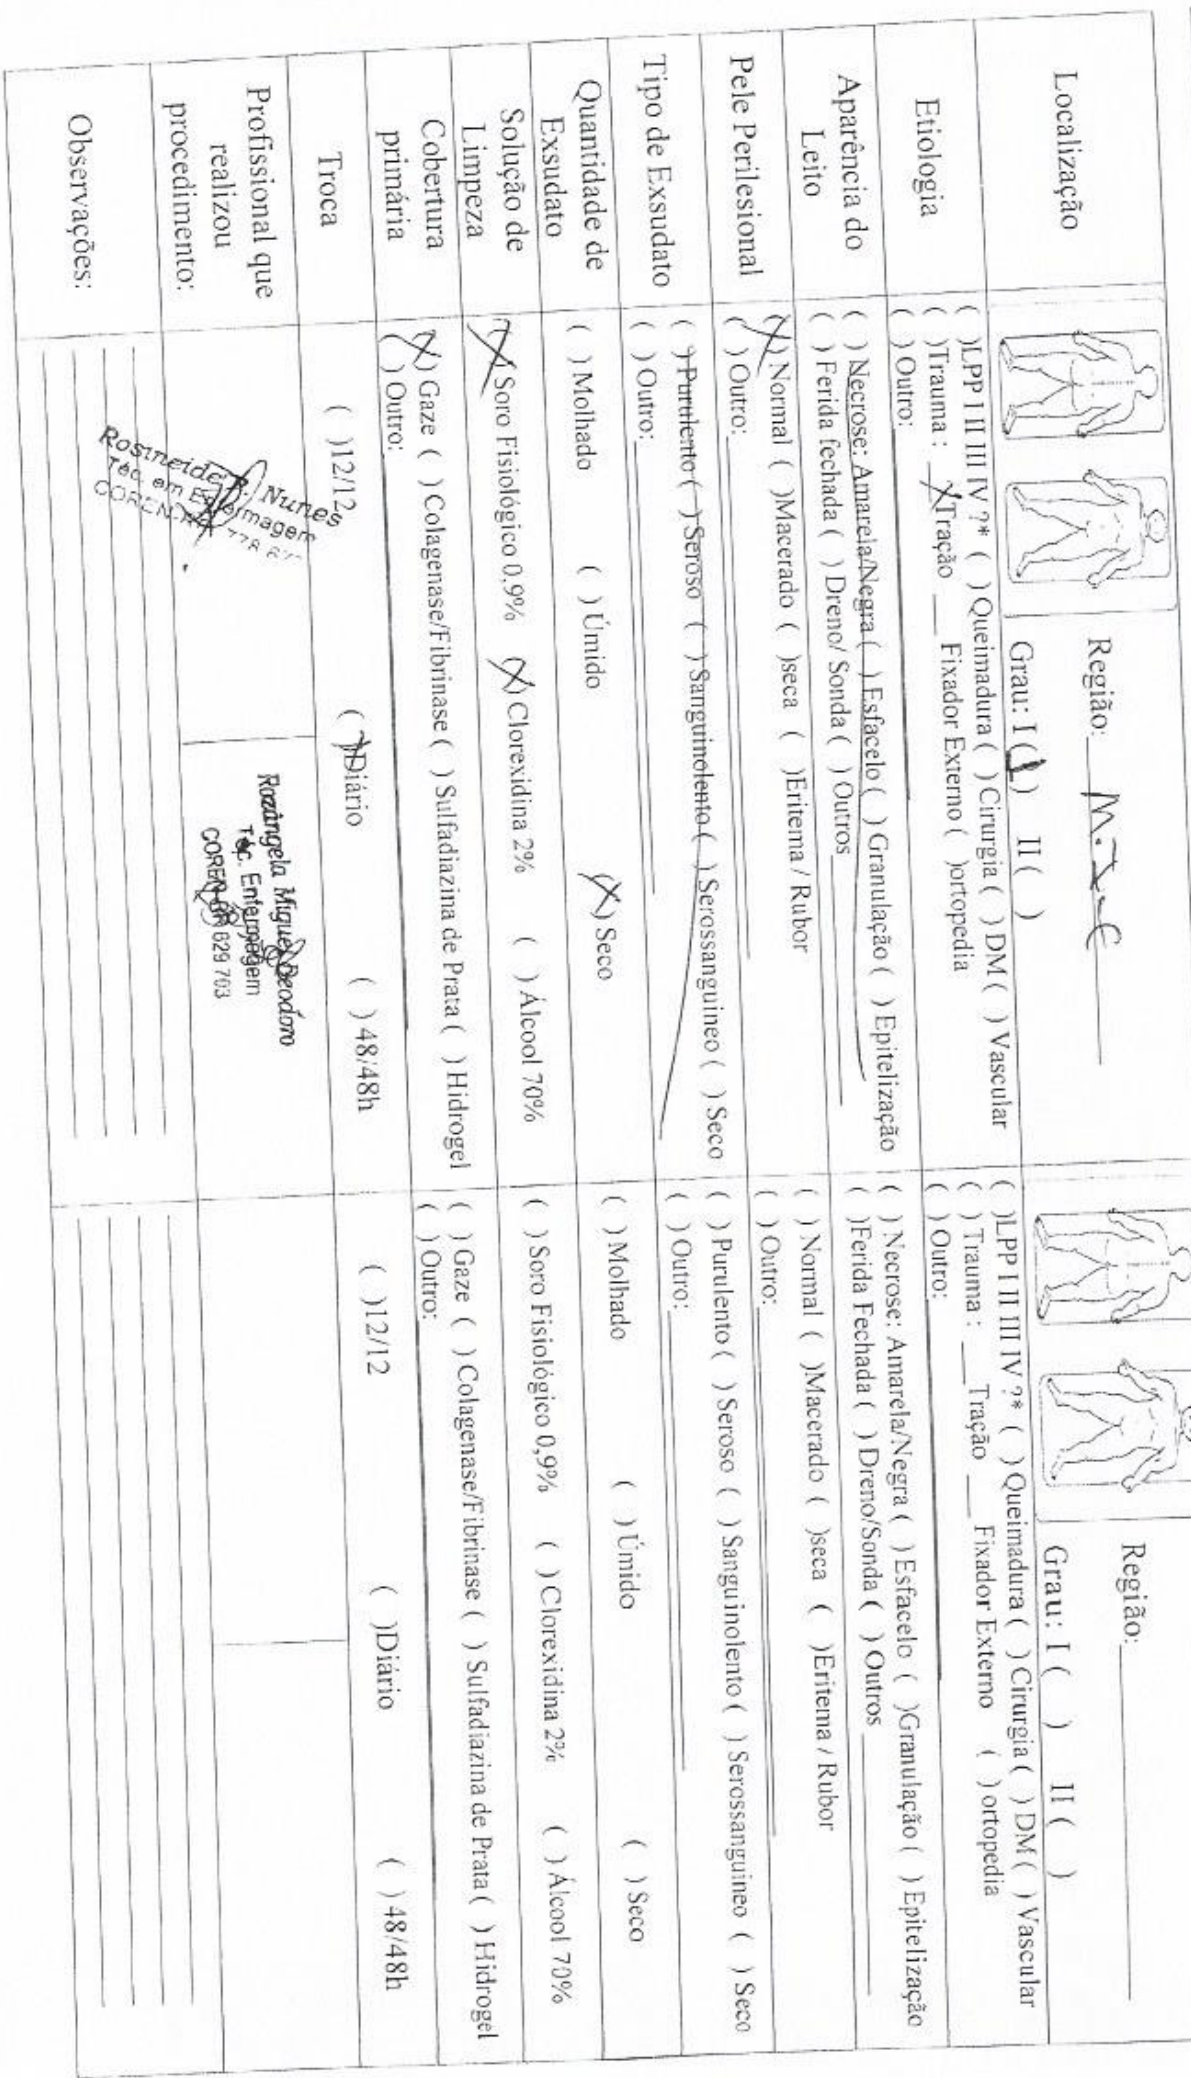 Localização
Região: M.I.E
Grau: I ( ) II ( )
Região:
Grau: I ( ) II ( )
Etiologia
( )LPP I II III IV ?* ( ) Queimadura ( ) Cirurgia ( ) DM ( ) Vascular
( )Trauma : X Tração __ Fixador Externo ( )ortopedia
( ) Outro:
( )LPP I II III IV ?* ( ) Queimadura ( ) Cirurgia ( ) DM ( ) Vascular
( ) Trauma : __ Tração __ Fixador Externo ( ) ortopedia
( ) Outro:
Aparência do
Leito
( ) Necrose: Amarela/Negra ( ) Esfacelo ( ) Granulação ( ) Epitelização
( ) Ferida fechada ( ) Dreno/ Sonda ( ) Outros
( ) Necrose: Amarela/Negra ( ) Esfacelo ( )Granulação ( ) Epitelização
( )Ferida Fechada ( ) Dreno/Sonda ( ) Outros
Pele Perilesional
(X) Normal ( )Macerado ( )seca ( )Eritema / Rubor
( ) Outro:
( ) Normal ( )Macerado ( )seca ( )Eritema / Rubor
( ) Outro:
Tipo de Exsudato
( ) Purulento ( ) Seroso ( ) Sanguinolento ( ) Serossanguineo ( ) Seco
( ) Outro:
( ) Purulento ( ) Seroso ( ) Sanguinolento ( ) Serossanguineo ( ) Seco
( ) Outro:
Quantidade de
Exsudato
( ) Molhado ( ) Úmido (X) Seco
( ) Molhado ( ) Úmido ( ) Seco
Solução de
Limpeza
(X) Soro Fisiológico 0,9% (X) Clorexidina 2% ( ) Álcool 70%
( ) Soro Fisiológico 0,9% ( ) Clorexidina 2% ( ) Álcool 70%
Cobertura
primária
(X) Gaze ( ) Colagenase/Fibrinase ( ) Sulfadiazina de Prata ( ) Hidrogel
( ) Outro:
( ) Gaze ( ) Colagenase/Fibrinase ( ) Sulfadiazina de Prata ( ) Hidrogel
( ) Outro:
Troca
( )12/12 (X)Diário ( ) 48/48h
( )12/12 ( )Diário ( ) 48/48h
Profissional que
realizou
procedimento:
Rosineide R. Nunes
Téc. em Enfermagem
COREN 778
Rozângela Miguel Deodoro
Téc. Enfermagem
COREN 629 703
Observações: